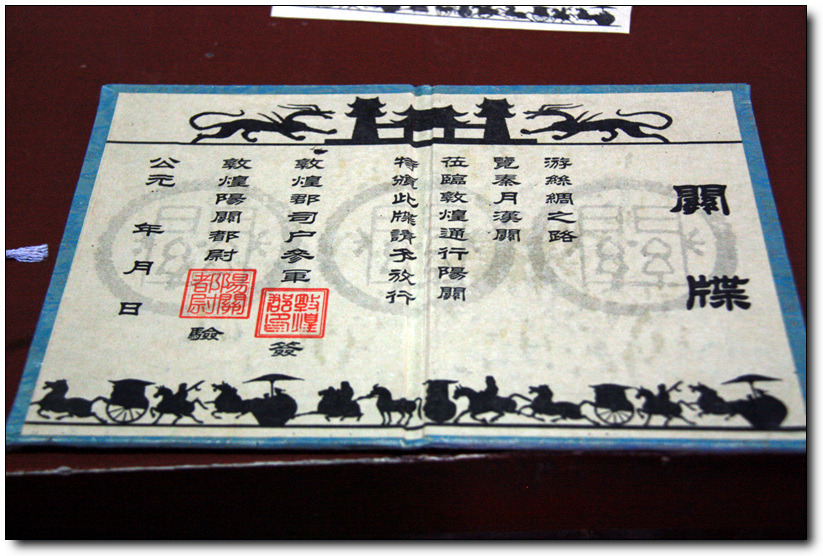 關牒
游絲綢之路
覽秦月漢關
莅臨敦煌通行陽關
特頒此牒請予放行
敦煌郡司户參軍
敦煌郡印
簽
敦煌陽關都尉
陽關都尉
驗
公元 年 月 日